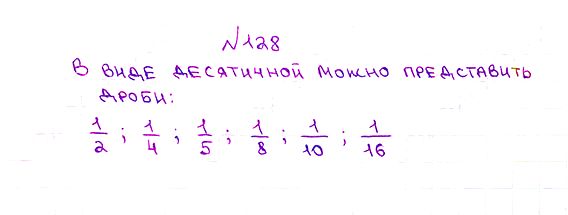 №128
В ВИДЕ ДЕСЯТИЧНОЙ МОЖНО ПРЕДСТАВИТЬ
ДРОБИ:
1/2 ; 1/4 ; 1/5 ; 1/8 ; 1/10 ; 1/16